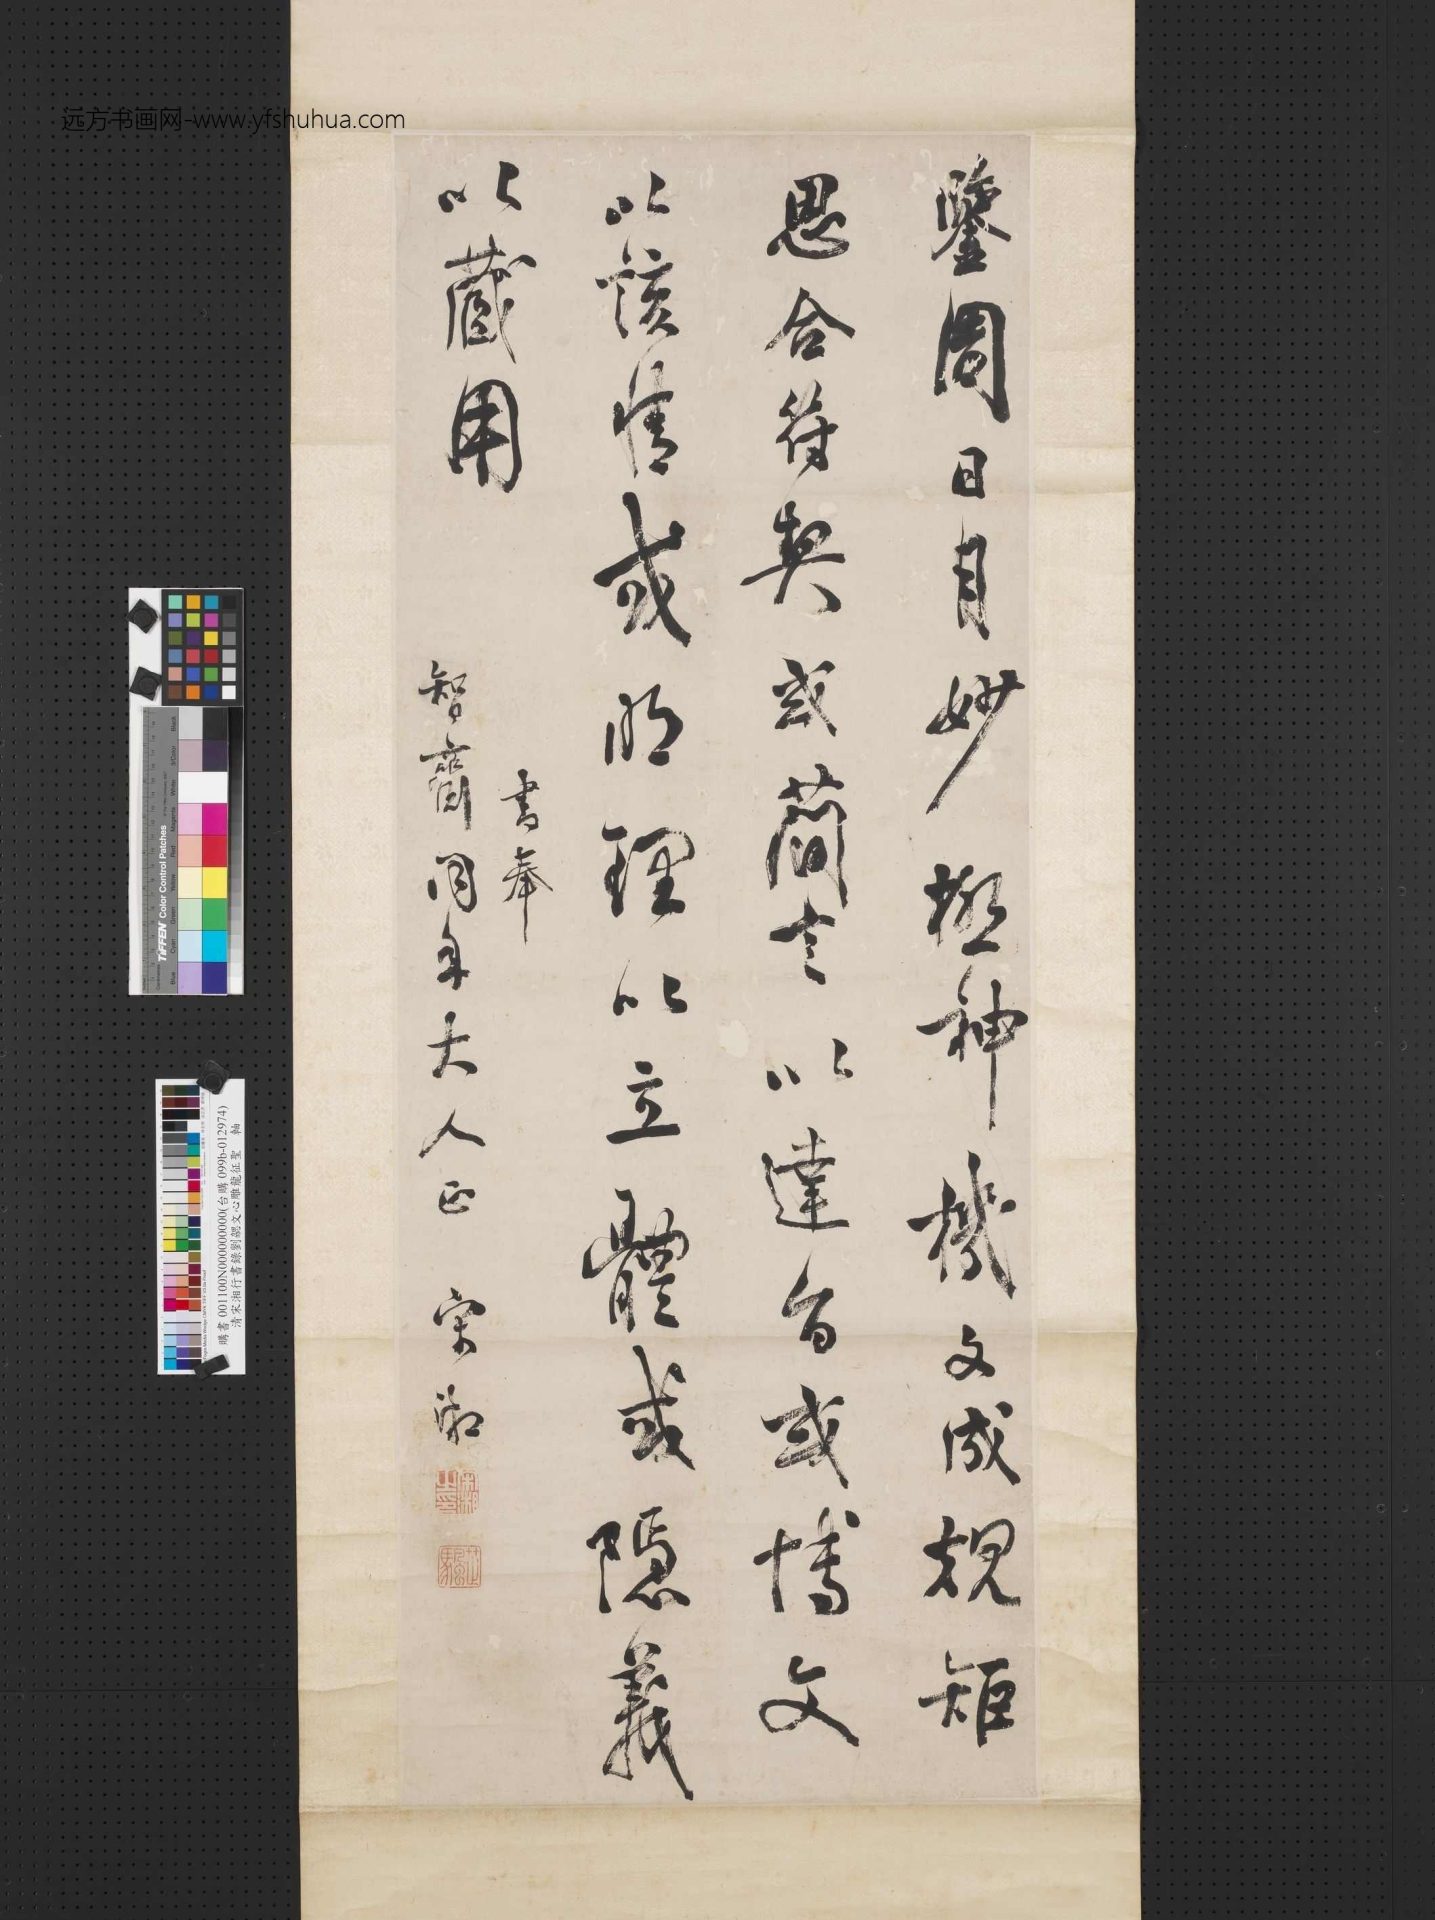 远方书画网-www.yfshuhua.com
鑒周日月妙極神機文成規矩
思合符契或簡言以達旨或博文
以該情或明理以立體或隱義
以藏用
書奉
智齋同年大人正 宋湘
宋湘之印
芷灣
購書 001100N000000000(台購 099b-012974)
清宋湘行書錄劉勰文心雕龍征聖 軸
TIFFEN Color Control Patches
Blue Cyan Green Yellow Red Magenta White 3/Color Black